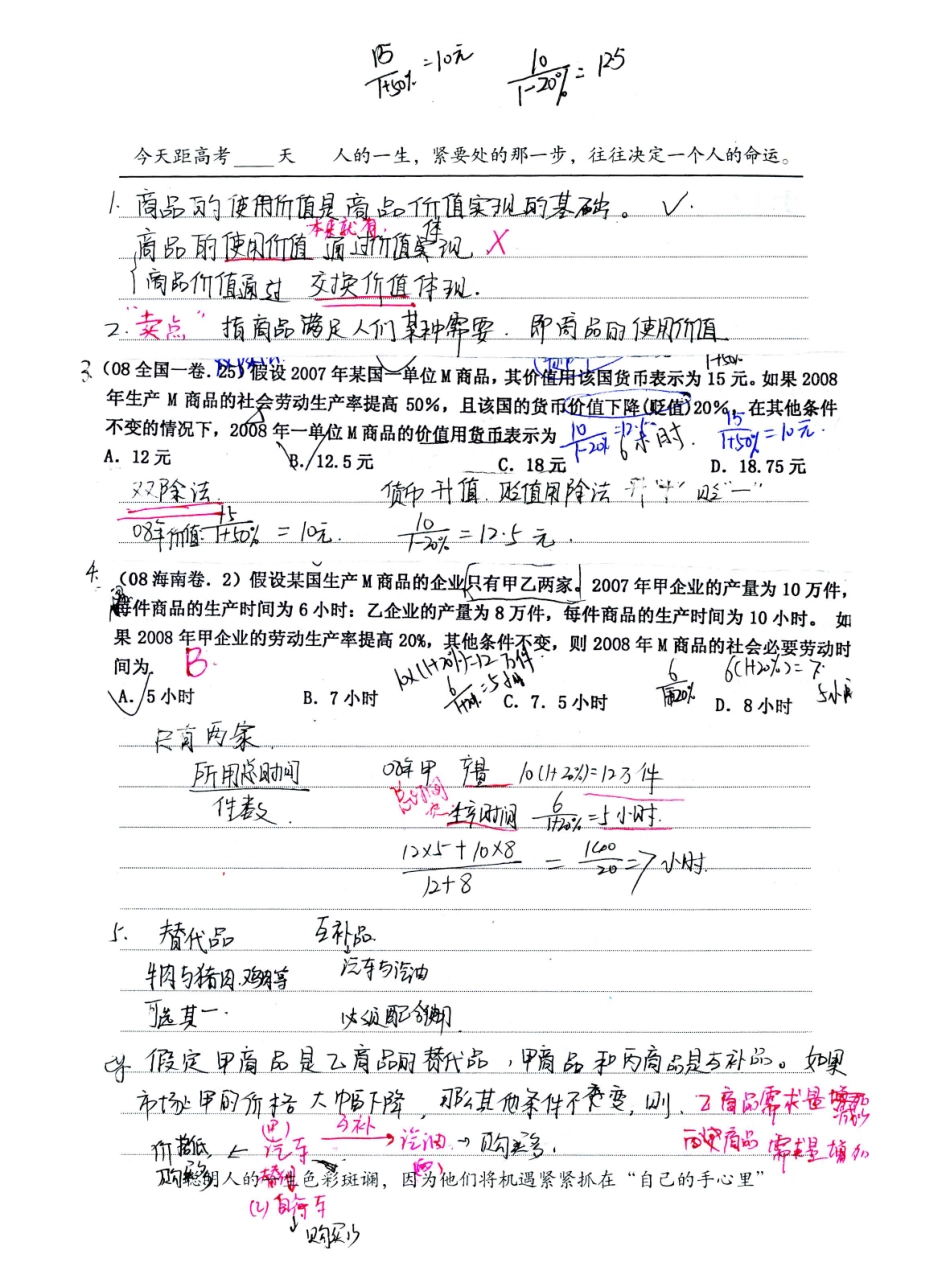 15/1+50%=10元 10/1-20%=125
今天距高考____天 人的一生，紧要处的那一步，往往决定一个人的命运。
1. 商品的使用价值是商品价值实现的基础。 ✓.
本来就有. 体
商品的使用价值通过价值实现 ×
商品价值通过 交换价值体现.
2. “卖点” 指商品满足人们某种需要. 即商品的使用价值
1+50%
3 (08 全国一卷. 25) 假设 2007 年某国一单位 M 商品，其价值用该国货币表示为 15 元。如果 2008
年生产 M 商品的社会劳动生产率提高 50%，且该国的货币价值下降(贬值)20%，在其他条件
不变的情况下，2008 年一单位 M 商品的价值用货币表示为 10/1-20%=12.5 6小时. 15/1+50%=10元.
A. 12 元 B. 12.5 元 C. 18 元 D. 18.75 元
双除法. 货币升值. 贬值用除法 升“+” 贬“—”
08年价值: 15/1+50% = 10元. 10/1-20% = 12.5元.
4. (08 海南卷. 2) 假设某国生产 M 商品的企业只有甲乙两家。2007 年甲企业的产量为 10 万件，
每件商品的生产时间为 6 小时：乙企业的产量为 8 万件，每件商品的生产时间为 10 小时。 如
果 2008 年甲企业的劳动生产率提高 20%，其他条件不变，则 2008 年 M 商品的社会必要劳动时
间为. B. 10×(1+20%)=12万件 6/1+20%=5小时 6/1+20% 6(1+20%)=7. 5小时
A. 5 小时 B. 7 小时 C. 7. 5 小时 D. 8 小时
只有两家.
所用总时间 08年甲 产量 10(1+20%)=12万件
件数. 总时间 生产时间 6/1+20%=5小时.
12×5+10×8/12+8 = 1400/20=7小时.
5. 替代品 互补品.
牛肉与猪肉.鸡肉等 汽车与汽油
可选其一. 必须配合使用.
eg 假定甲商品是乙商品的替代品，甲商品和丙商品是互补品。如果
市场上甲的价格大幅下降，那么其他条件不变，则. 乙商品需求量减少
价格低 ← (甲)汽车 互补→ 汽油(丙) → 购买多. 丙商品需求量增加
购买多 聪明人的一生色彩斑谰，因为他们将机遇紧紧抓在“自己的手心里”
替代
(乙)自行车
↓购买少